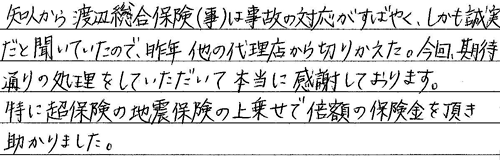 知人から渡辺総合保険(事)は事故の対応がすばやく、しかも誠実
だと聞いていたので、昨年他の代理店から切りかえた。今回、期待
通りの処理をしていただいて本当に感謝しております。
特に超保険の地震保険の上乗せで倍額の保険金を頂き
助かりました。